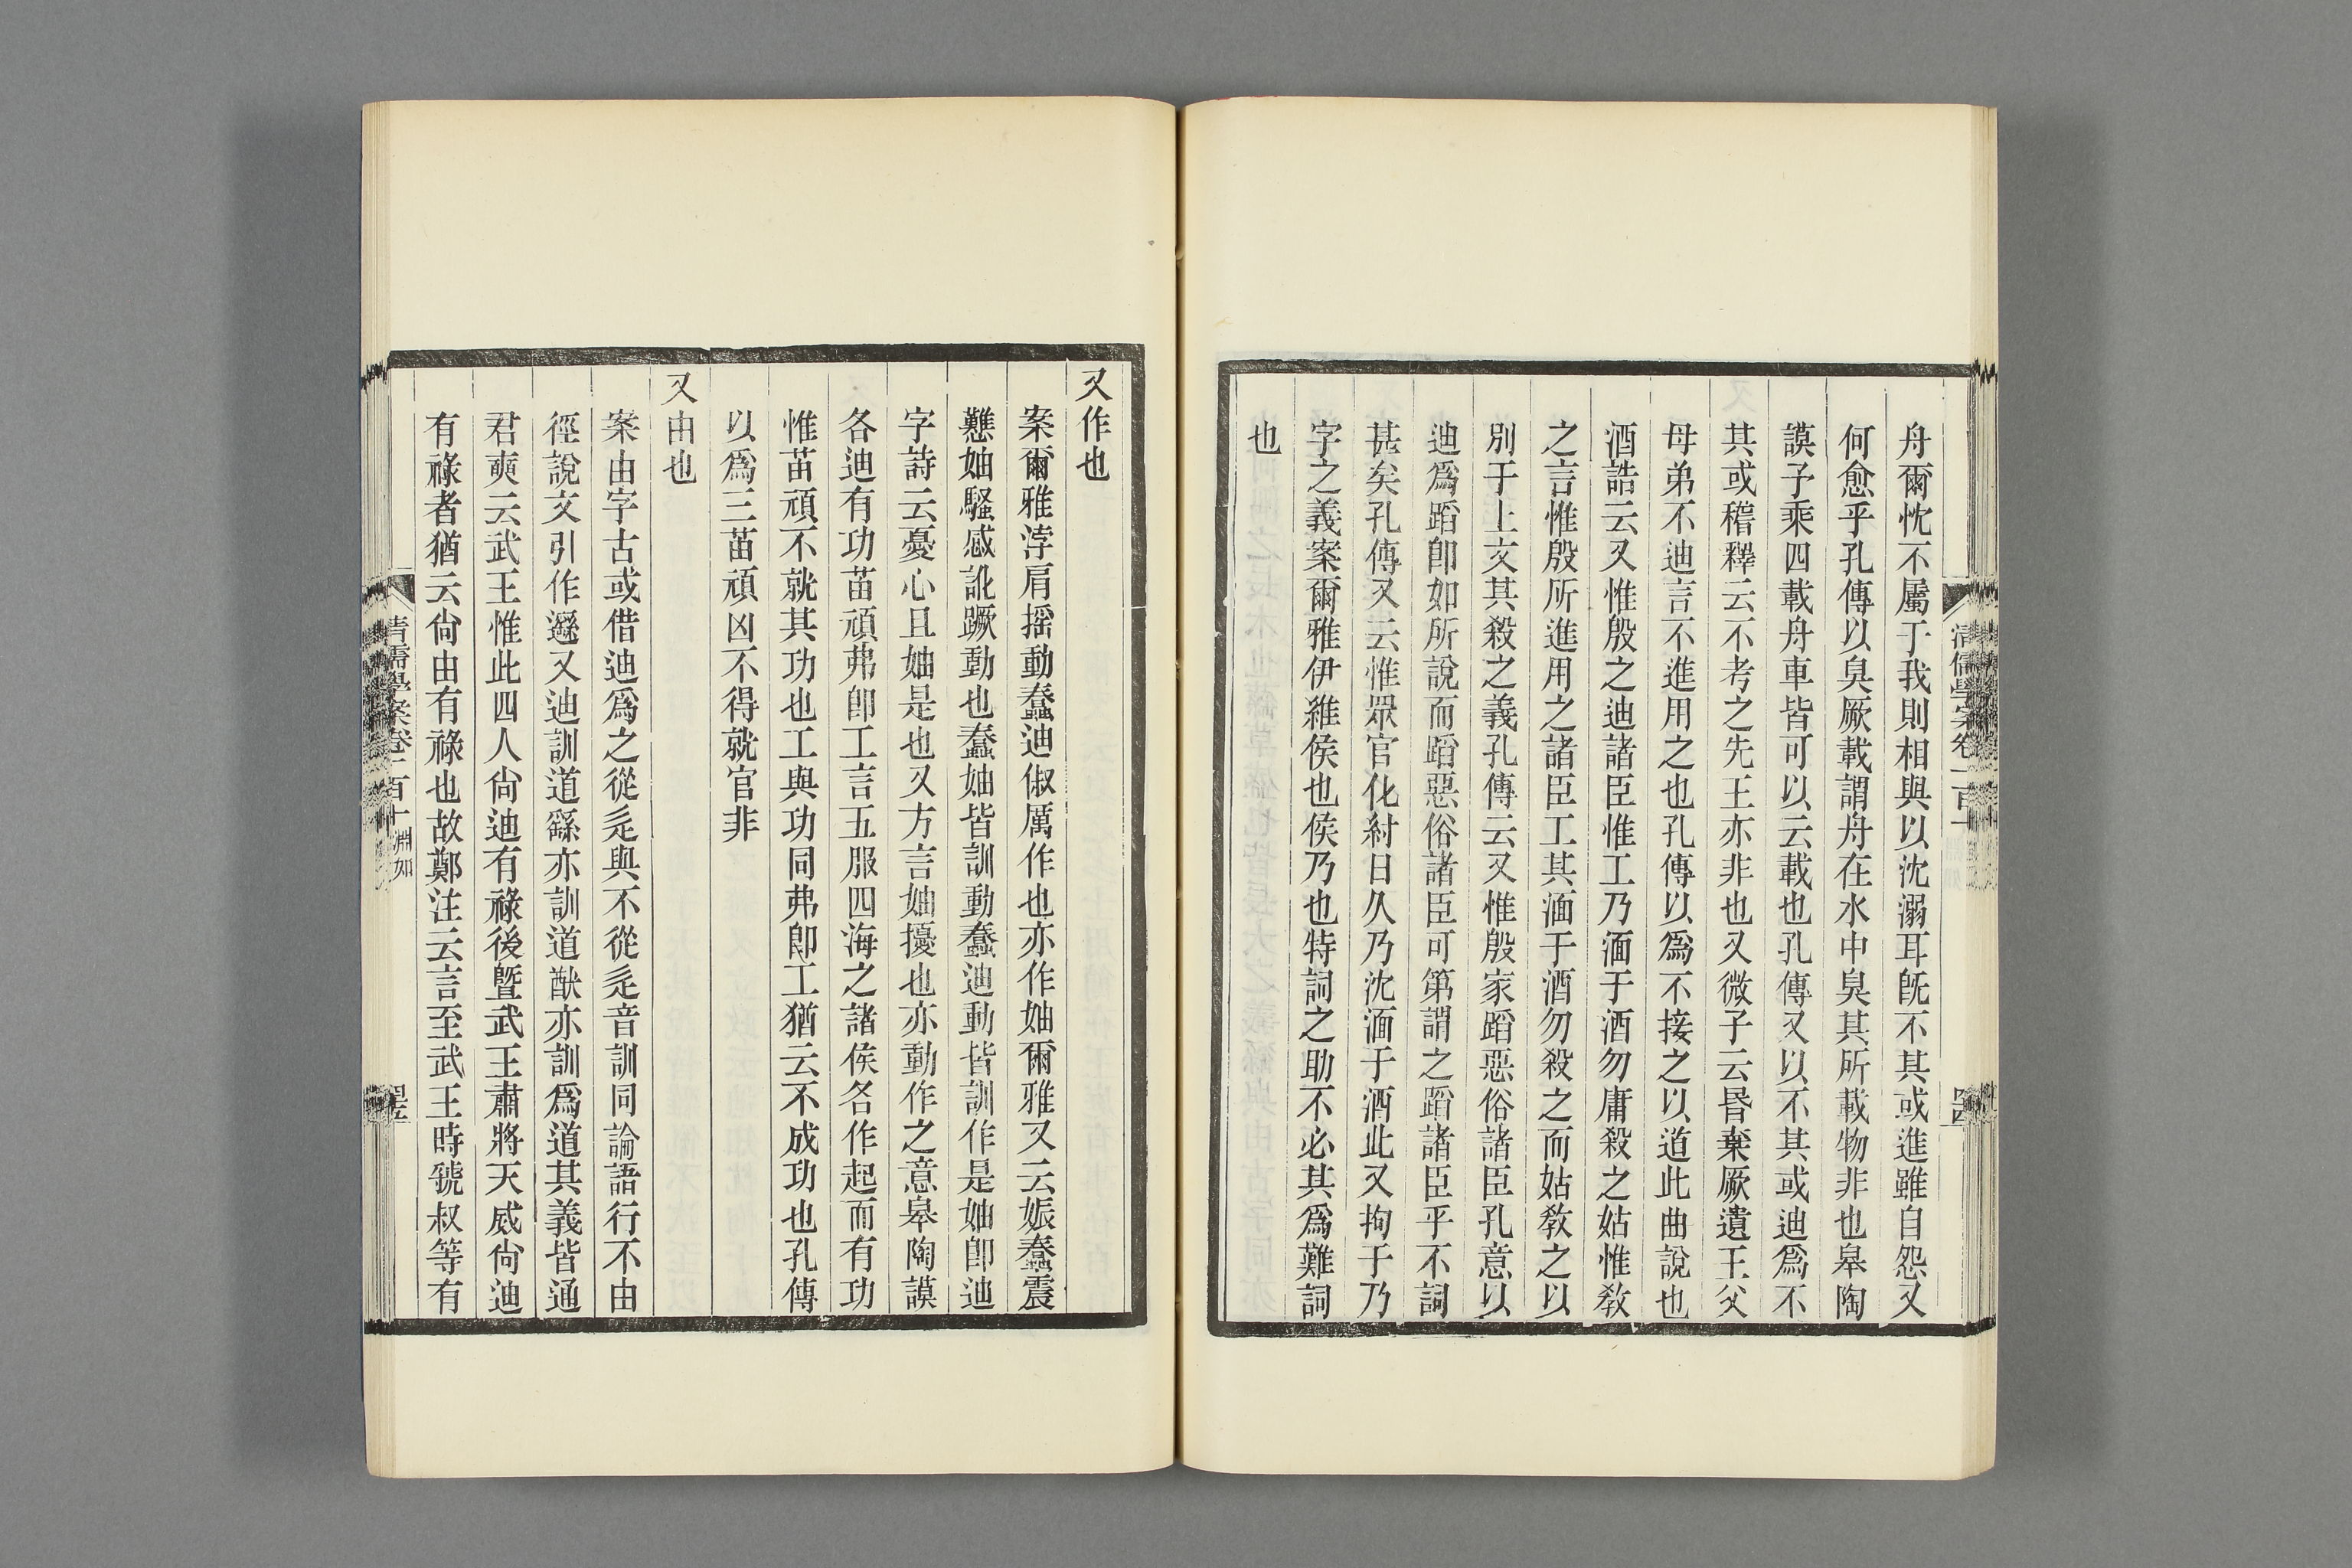 舟爾忱不屬于我則相與以沈溺耳旣不其或進雖自怨又
何愈乎孔傳以臭厥載謂舟在水中臭其所載物非也皐陶
謨予乘四載舟車皆可以云載也孔傳又以不其或迪爲不
其或稽釋云不考之先王亦非也又微子云昬棄厥遺王父
母弟不迪言不進用之也孔傳以爲不接之以道此曲說也
酒誥云又惟殷之迪諸臣惟工乃湎于酒勿庸殺之姑惟敎
之言惟殷所進用之諸臣工其湎于酒勿殺之而姑敎之以
別于上文其殺之義孔傳云又惟殷家蹈惡俗諸臣孔意以
迪爲蹈卽如所說而蹈惡俗諸臣可第謂之蹈諸臣乎不詞
甚矣孔傳又云惟眾官化紂日久乃沈湎于酒此又拘于乃
字之義案爾雅伊維侯也侯乃也特詞之助不必其爲難詞
也
清儒學案卷一百十
又作也
案爾雅浡肩搖動蠢迪俶厲作也亦作妯爾雅又云娠蠢震
戁妯騷感訛蹶動也蠢妯皆訓動蠢迪動皆訓作是妯卽迪
字詩云憂心且妯是也又方言妯擾也亦動作之意皐陶謨
各迪有功苗頑弗卽工言五服四海之諸侯各作起而有功
惟苗頑不就其功也工與功同弗卽工猶云不成功也孔傳
以爲三苗頑凶不得就官非
又由也
案由字古或借迪爲之從辵與不從辵音訓同論語行不由
徑說文引作邎又迪訓道繇亦訓道猷亦訓爲道其義皆通
君奭云武王惟此四人尙迪有祿後曁武王肅將天威尙迪
有祿者猶云尙由有祿也故鄭注云言至武王時虢叔等有
清儒學案卷一百十 淵如